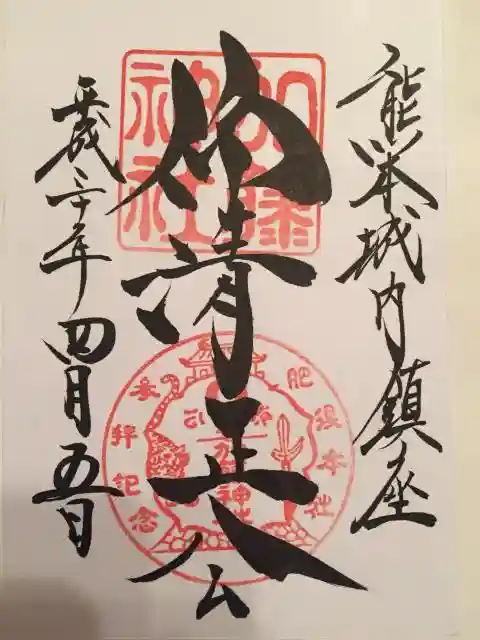 熊本城内鎮座
仰清正公
平成三十年四月五日
加藤神社
肥後本社
加藤神社
参拝記念